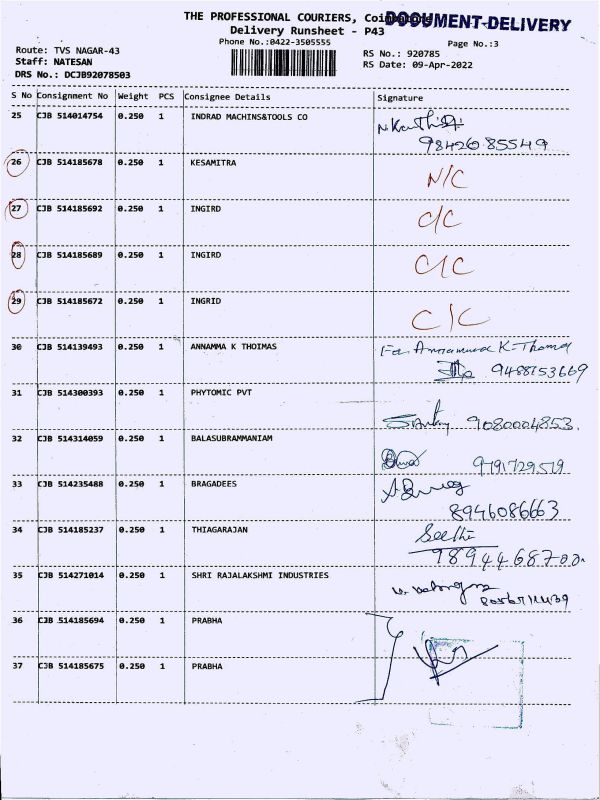 THE PROFESSIONAL COURIERS, Coimbatore
DOCUMENT-DELIVERY
Delivery Runsheet - P43
Phone No.:0422-3505555
Page No.:3
Route: TVS NAGAR-43
RS No.: 920785
Staff: NATESAN
RS Date: 09-Apr-2022
DRS No.: DCJB92078503
S No Consignment No Weight PCS Consignee Details Signature
25 CJB 514014754 0.250 1 INDRAD MACHINS&TOOLS CO
98426 85549
26 CJB 514185678 0.250 1 KESAMITRA N/C
27 CJB 514185692 0.250 1 INGIRD C/C
28 CJB 514185689 0.250 1 INGIRD C/C
29 CJB 514185672 0.250 1 INGRID C/C
30 CJB 514139493 0.250 1 ANNAMMA K THOIMAS For Annamma K. Thomas
9488153669
31 CJB 514300393 0.250 1 PHYTOMIC PVT
9080004853.
32 CJB 514314059 0.250 1 BALASUBRAMMANIAM
9791729519
33 CJB 514235488 0.250 1 BRAGADEES
8946086663
34 CJB 514185237 0.250 1 THIAGARAJAN Seethi
9894468700
35 CJB 514271014 0.250 1 SHRI RAJALAKSHMI INDUSTRIES
36 CJB 514185694 0.250 1 PRABHA
37 CJB 514185675 0.250 1 PRABHA